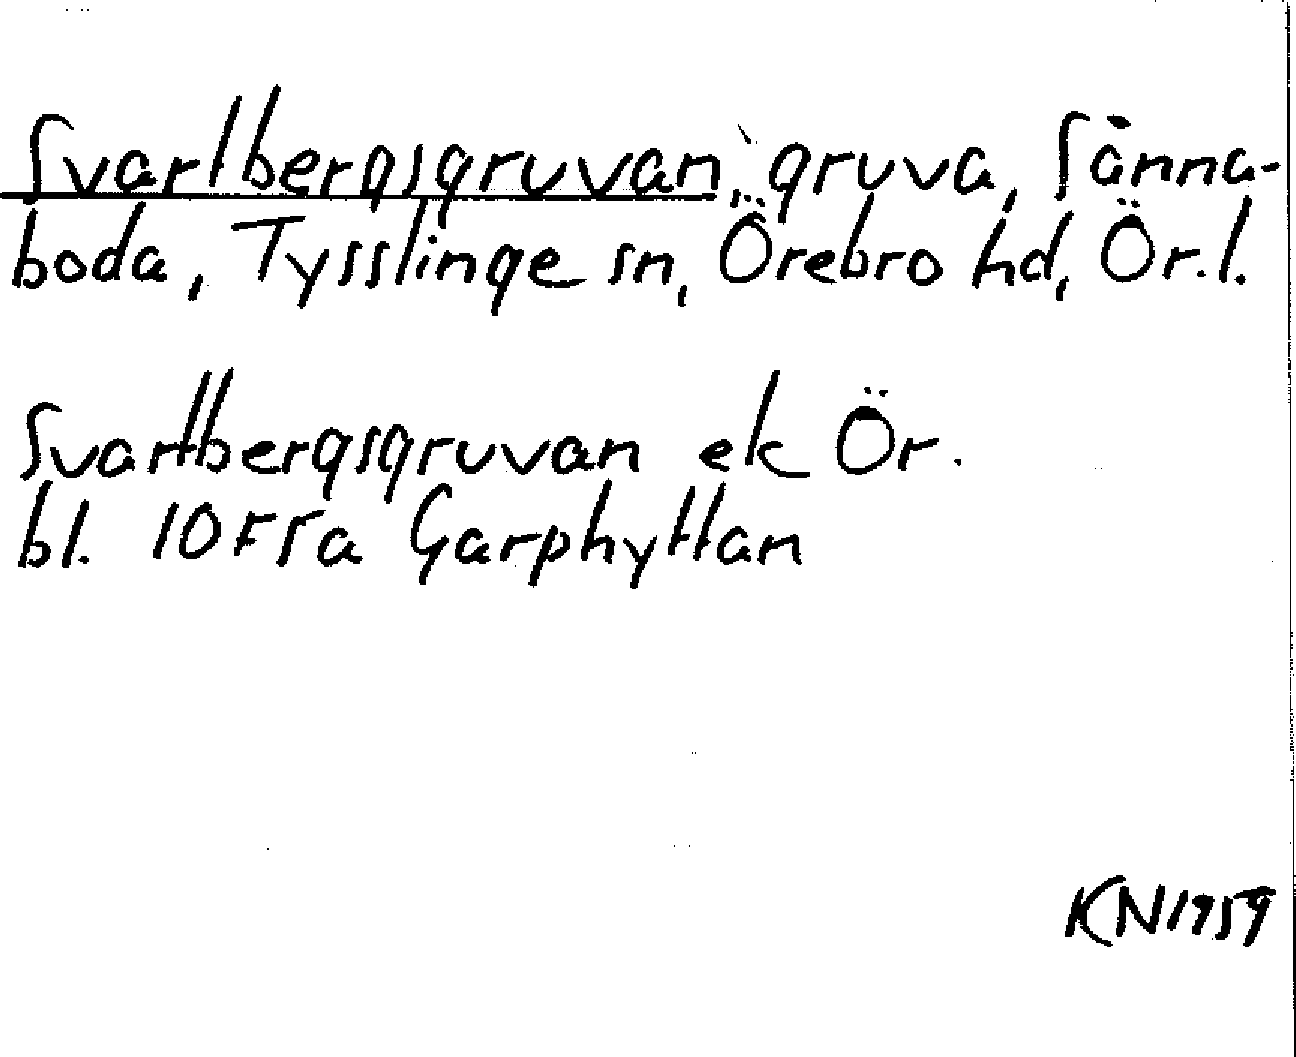 Svartbergsgruvan, gruva, Sånna-
boda, Tysslinge sn, Örebro hd, Ör.l.
Svartbergsgruvan ek Ör.
bl. 10F5a Garphyttan
KN1959